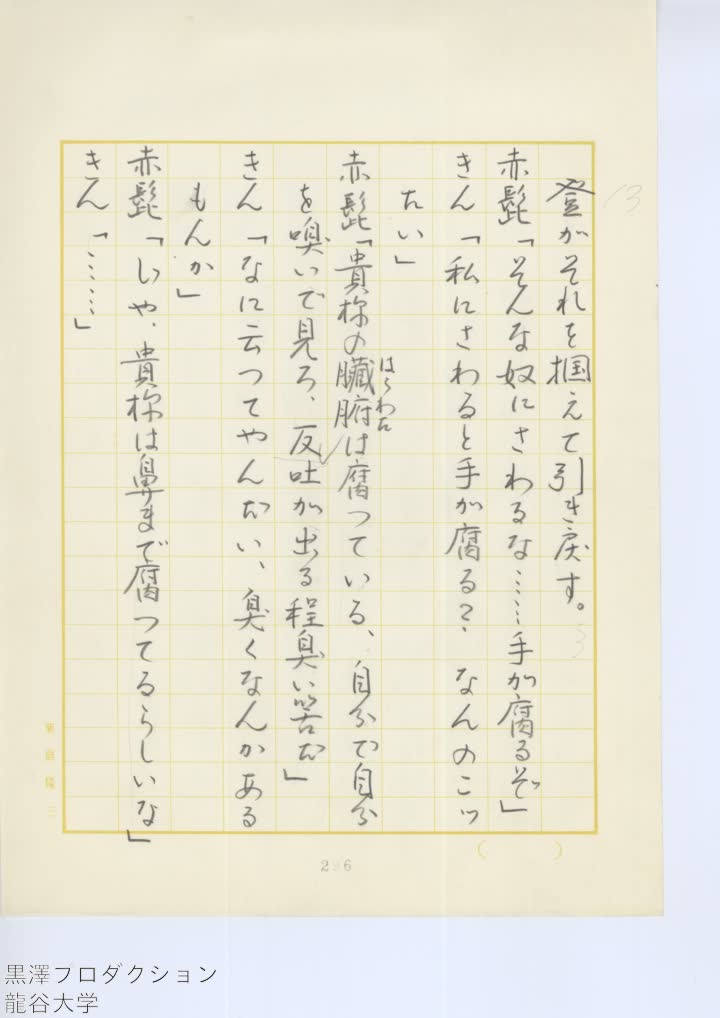 13
登がそれを掴えて引き戻す。
赤髭「そんな奴にさわるな……手が腐るぞ」
きん「私にさわると手が腐る？　なんのこッ
たい」
赤髭「貴様の臓腑は腐つている、自分で自分
はらわた
を嗅いで見ろ、反吐が出る程臭い筈だ」
きん「なに云つてやんだい、臭くなんかある
もんか」
赤髭「じや、貴様は鼻まで腐つてるらしいな」
きん「……」
296
黒澤プロダクション
龍谷大学